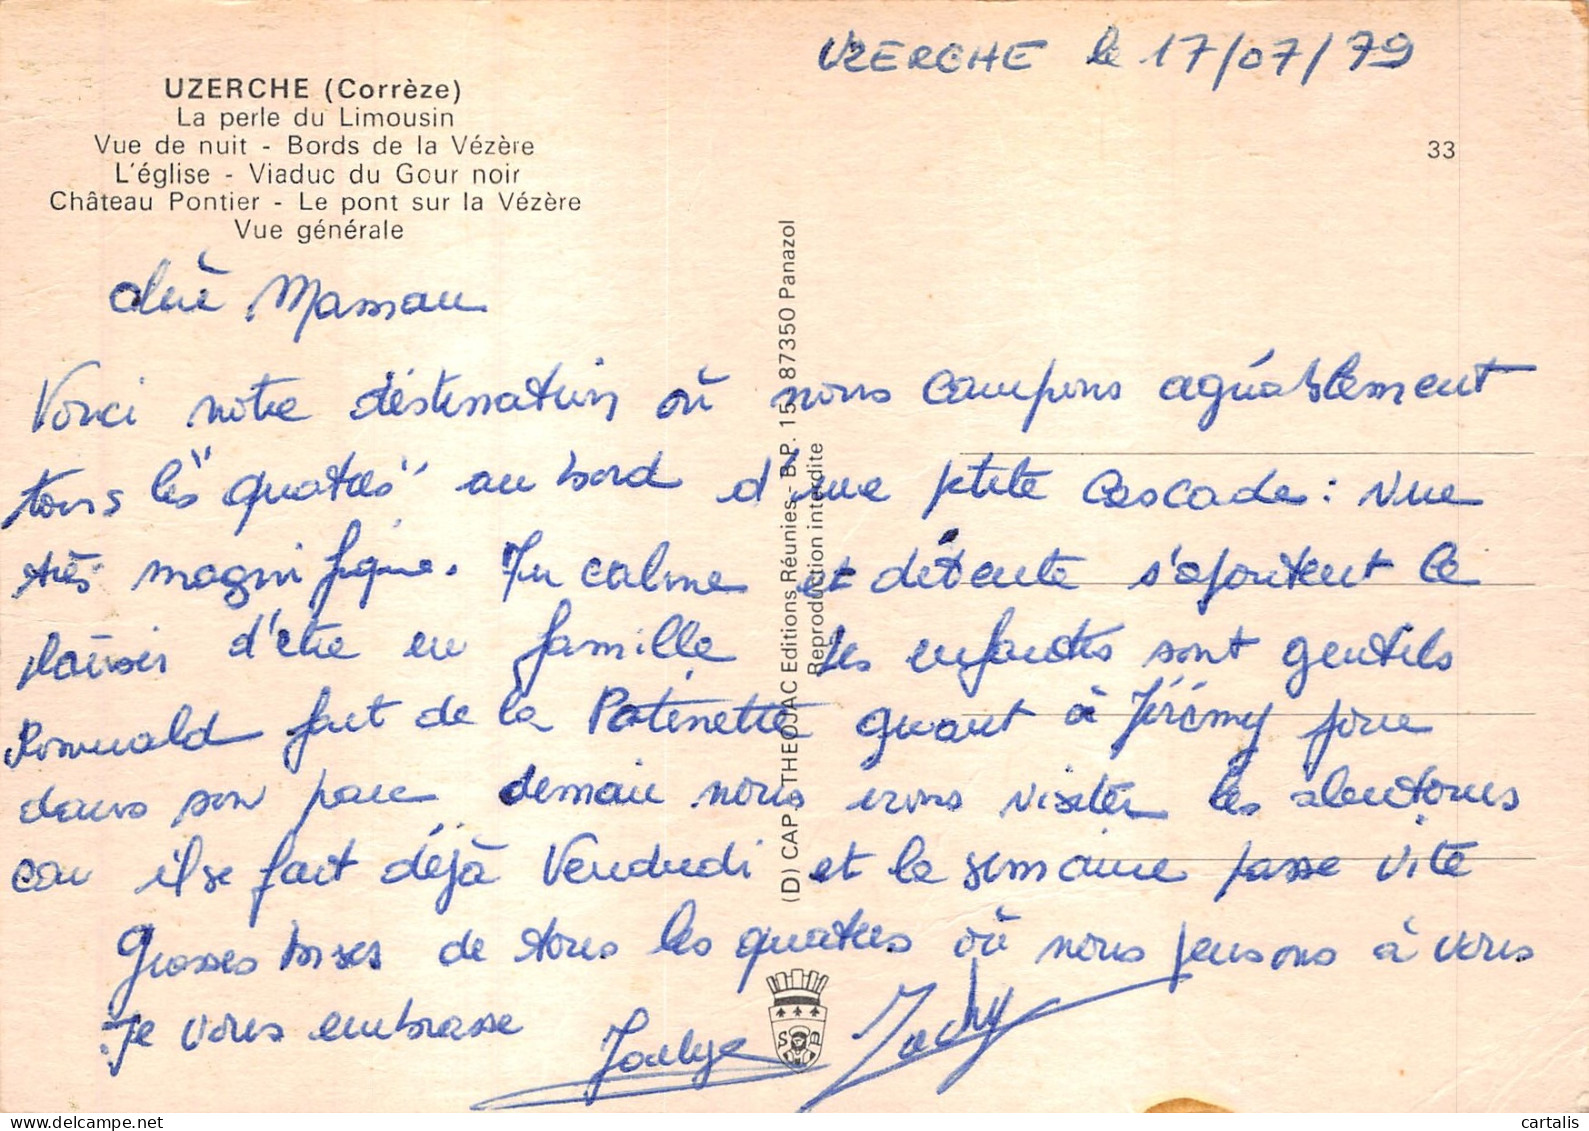 UZERCHE le 17/07/79
UZERCHE (Corrèze)
La perle du Limousin
Vue de nuit - Bords de la Vézère
L'église - Viaduc du Gour noir
Château Pontier - Le pont sur la Vézère
Vue générale
33
(D) CAP-THEOJAC Editions Réunies - B.P. 15 87350 Panazol
Reproduction interdite
Maman
Voici notre déstination où nous campons agréablement
tous les "quatres" au bord d'une ptite Cascade : vue
très magnifique. Au calme et détente s'ajoutent le
plaisir d'être en famille les enfants sont gentils
Romuald fait de la Patinette quant à Jérémy joue
dans son parc demain nous irons visiter les alentours
car il se fait déjà Vendredi et la semaine passe vite
Grosses bises de tous les quatres où nous pensons à vous
Je vous embrasse
S B
cartalis